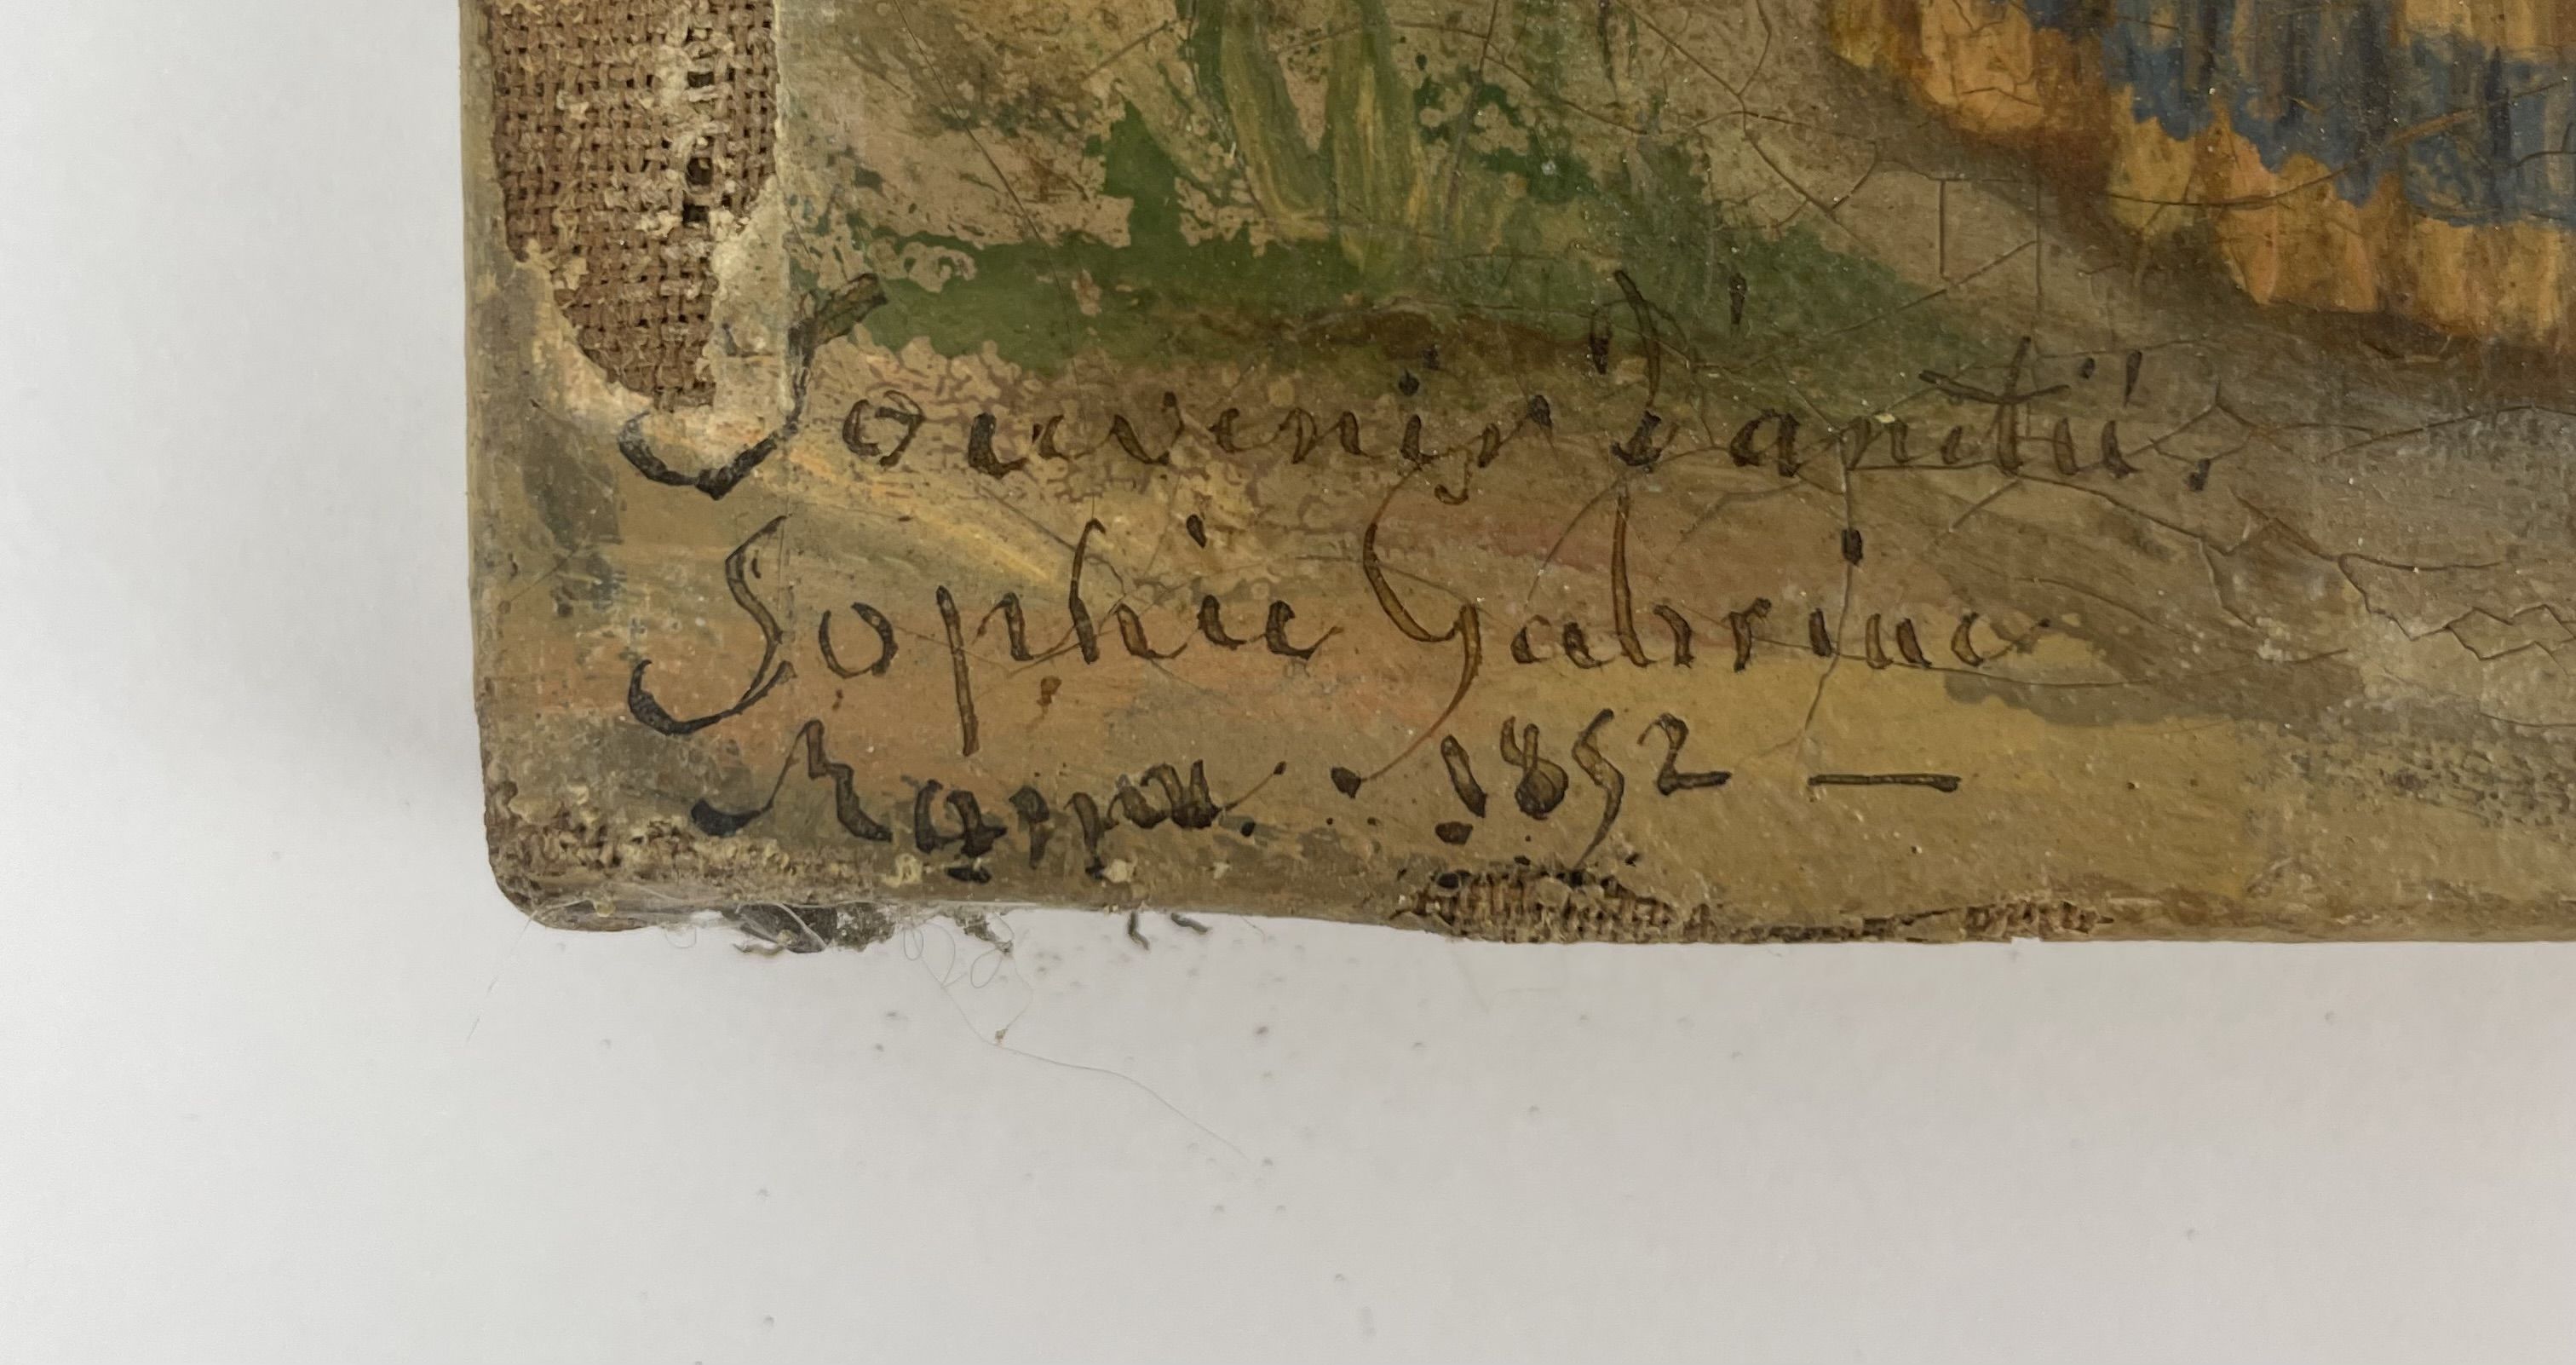 Souvenir d'amitié,
Sophie Gabriac
1852 —